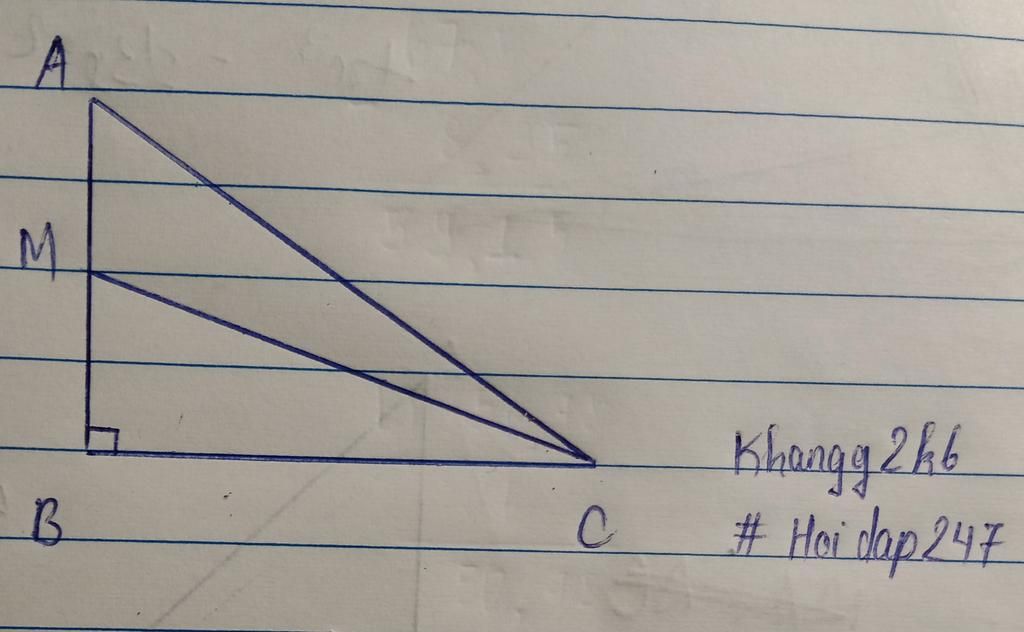 A
M
B
C
Khangg2k6
# Hoidap247